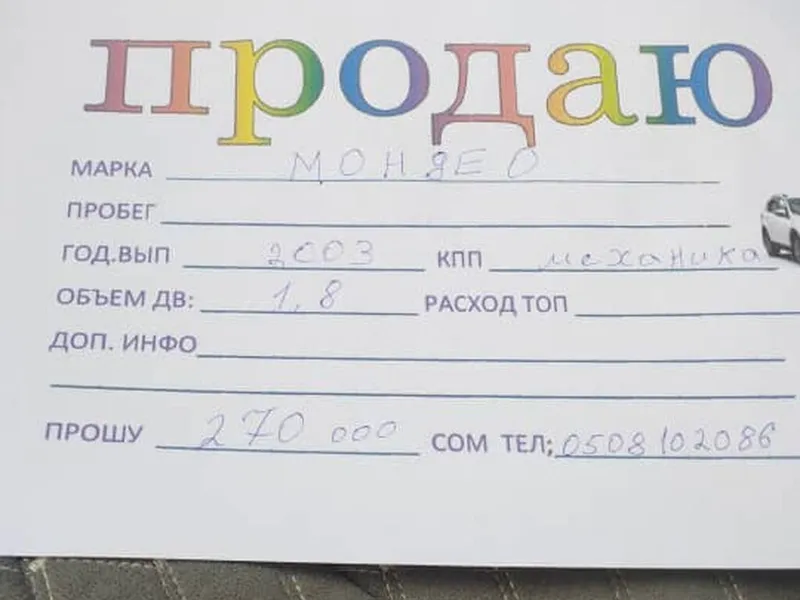 продаю
МАРКА МОНДЕО
ПРОБЕГ
ГОД.ВЫП 2003 КПП механика
ОБЪЕМ ДВ: 1,8 РАСХОД ТОП
ДОП. ИНФО
ПРОШУ 270 000 СОМ ТЕЛ; 0508102086